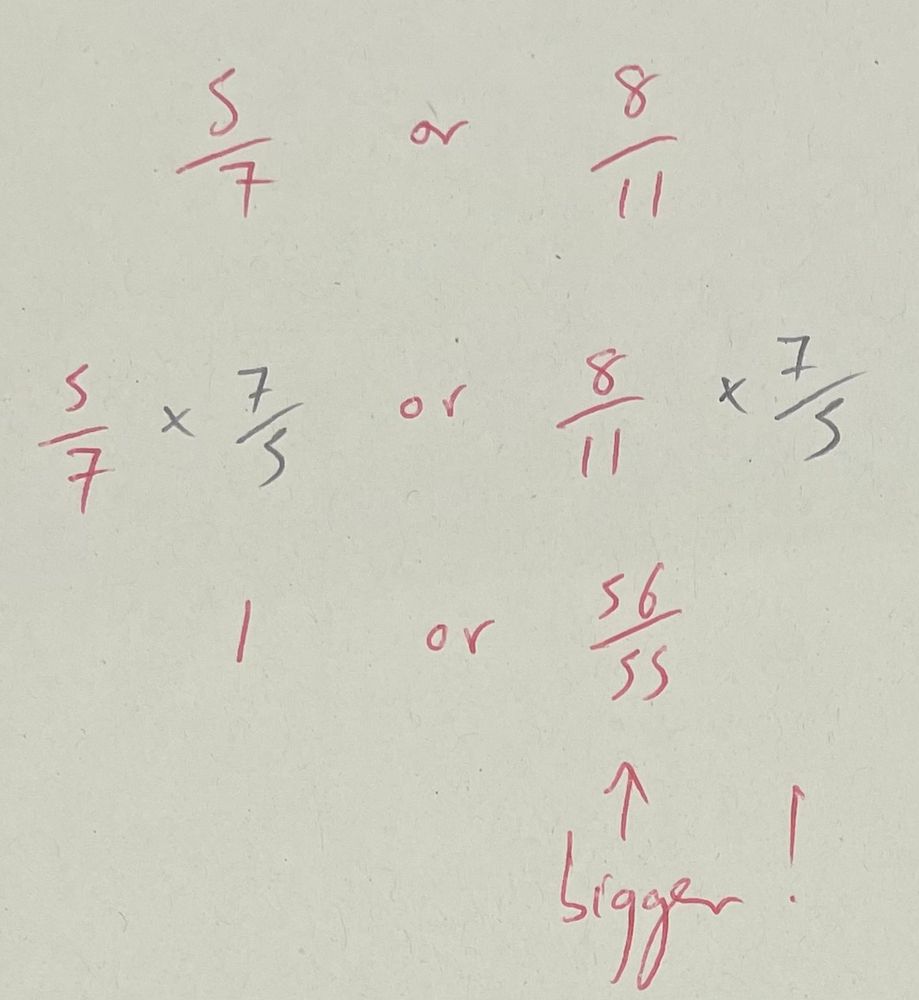 5/7 or 8/11
5/7 × 7/5 or 8/11 × 7/5
1 or 56/55
↑
bigger !